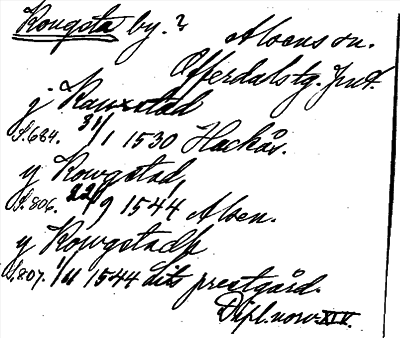 Kougsta by.?
Alsens sn.
Offerdals tg. Jmt.
j Kauxstad
S.684. 31/1 1530 Hackås.
y Kowgstad
S.806. 22/9 1544 Alsen.
y Kowgstadh
S.807. 1/11 1544 Lits prestgård.
Dipl. norv. XIV.